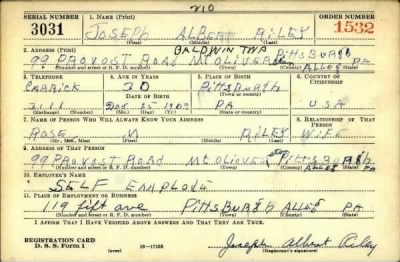 210
SERIAL NUMBER 1. NAME (Print) ORDER NUMBER
3031 JOSEPH ALBERT RILEY 1532
(First) (Middle) (Last)
BALDWIN TWP
2. ADDRESS (Print)
99 PROVOST ROAD MT OLIVER PITTSBURGH ALLEG PA
(Number and street or R. F. D. number) (Town) (County) (State)
3. TELEPHONE 4. AGE IN YEARS 5. PLACE OF BIRTH 6. COUNTRY OF CITIZENSHIP
CARRICK 30 PITTSBURGH
DATE OF BIRTH
3111 DEC 25 PA USA
(Exchange) (Number) (Mo.) (Day) (Yr.) (State or country)
7. NAME OF PERSON WHO WILL ALWAYS KNOW YOUR ADDRESS 8. RELATIONSHIP OF THAT PERSON
ROSE M RILEY WIFE
(Mr., Mrs., Miss) (First) (Middle) (Last)
9. ADDRESS OF THAT PERSON
99 PROVOST ROAD MT OLIVER PITTSBURGH ALLEG PA
(Number and street or R. F. D. number) (Town) (County) (State)
10. EMPLOYER'S NAME
SELF EMPLOYE
11. PLACE OF EMPLOYMENT OR BUSINESS
119 FIFT AVE PITTSBURGH ALLEG PA
(Number and street or R. F. D. number) (Town) (County) (State)
I AFFIRM THAT I HAVE VERIFIED ABOVE ANSWERS AND THAT THEY ARE TRUE.
REGISTRATION CARD
D. S. S. Form 1 (over) 16—17105 Joseph Albert Riley
(Registrant's signature)